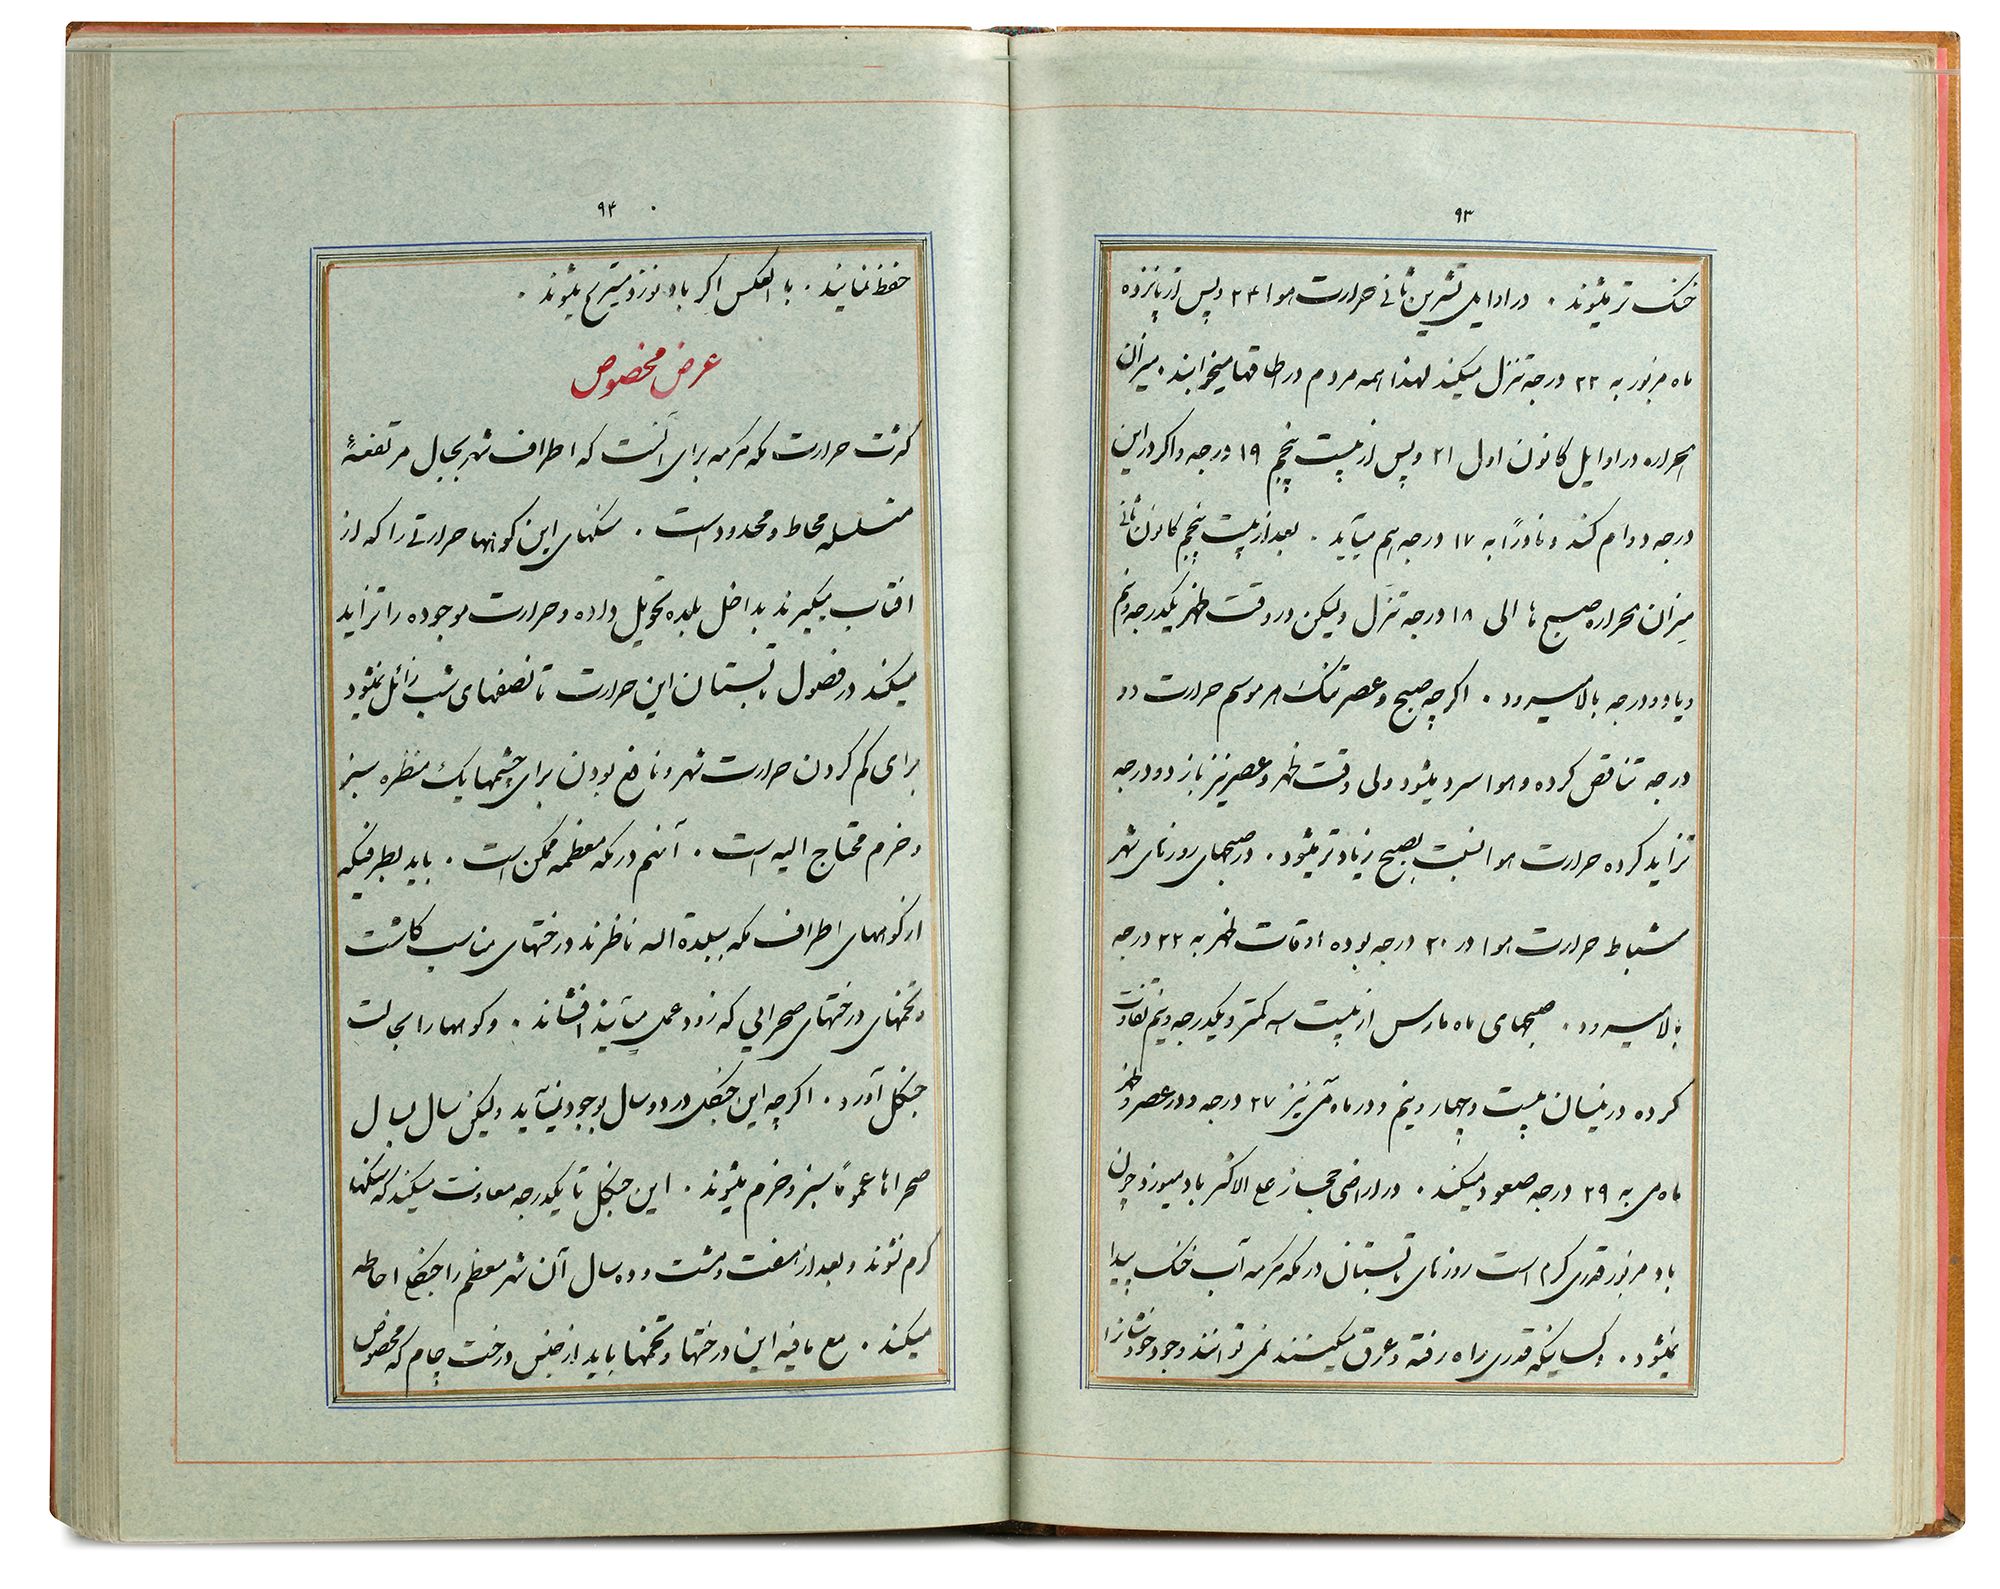 ۹۳
خنک تر میشوند . در اوایل تشرین ثانی حرارت هوا ۲۴ و پس از پانزده
ماه مزبور به ۲۲ درجه تنزل میکند لهذا همه مردم در اطاقها میخوابند . میزان
الحراره در اوایل کانون اول ۲۱ و پس از بیست پنجم ۱۹ درجه و اکر در این
درجه دوام کند و نادراً به ۱۷ درجه هم میآید . بعد از بیست پنجم کانون ثانی
میزان الحراره صبح ها الی ۱۸ درجه تنزل ولیکن در وقت ظهر یکدرجه و نیم
و یا دو درجه بالا میرود . اکر چه صبح و عصر تنک هر موسم حرارت دو
درجه تناقص کرده و هوا سرد میشود ولی وقت ظهر و عصر نیز باز دو درجه
تزاید کرده حرارت هوا نسبت بصبح زیادتر میشود . در صبحهای روزهای شهر
شباط حرارت هوا در ۲۰ درجه بوده اوقات ظهر به ۲۲ درجه
بالا میرود . صبحهای ماه مارس از بیست سه کمتر و یکدرجه و نیم تفاوت
کرده در نیسان بیست و چهار و نیم و در ماه می نیز ۲۷ درجه و در عصر و ظهر
ماه می به ۲۹ درجه صعود میکند . در اراضی حجاز علی الاکثر باد میوزد چون
باد مزبور قدری کرم است روزهای تابستان در مکه مکرمه آب خنک پیدا
نمیشود . و کسانیکه قدری راه رفته و عرق میکنند نمی توانند وجود خودشانرا
۹۴
حفظ نمایند . با العکس اکر باد نوزد مستریح میشوند .
عرض مخصوص
کثرت حرارت مکه مکرمه برای آنست که اطراف شهر بجبال مرتفعهٔ
متسلسله محاط و محدود است . سنکهای این کوهها حرارتی را که از
افتاب میکیرند بداخل بلده تحویل داده و حرارت موجوده را تزاید
میکند در فصول تابستان این حرارت تا نصفهای شب زائل نمیشود
برای کم کردن حرارت شهر و نافع بودن برای چشمها یک منظره سبز
و خرم محتاج الیه است . آنهم در مکه معظمه ممکن است . باید بطرفیکه
از کوههای اطراف مکه ببلدة اله ناظرند درختهای مناسب کاشت
و تخمهای درختهای صحرایی که زود عمل میآیند افشاند . و کوهها را بحالت
جنکل آورد . اکر چه این جنکل در دو سال بوجود نمیآید ولیکن سال بسال
صحراها عموماً سبز و خرم میشوند . این جنکل تا یکدرجه معاونت میکند که سنکها
کرم نشوند و بعد از هفت و هشت و ده سال آن شهر معظم را جنکلی احاطه
میکند . مع مافیه این درختها و تخمها باید از جنس درخت چام که مخصوص